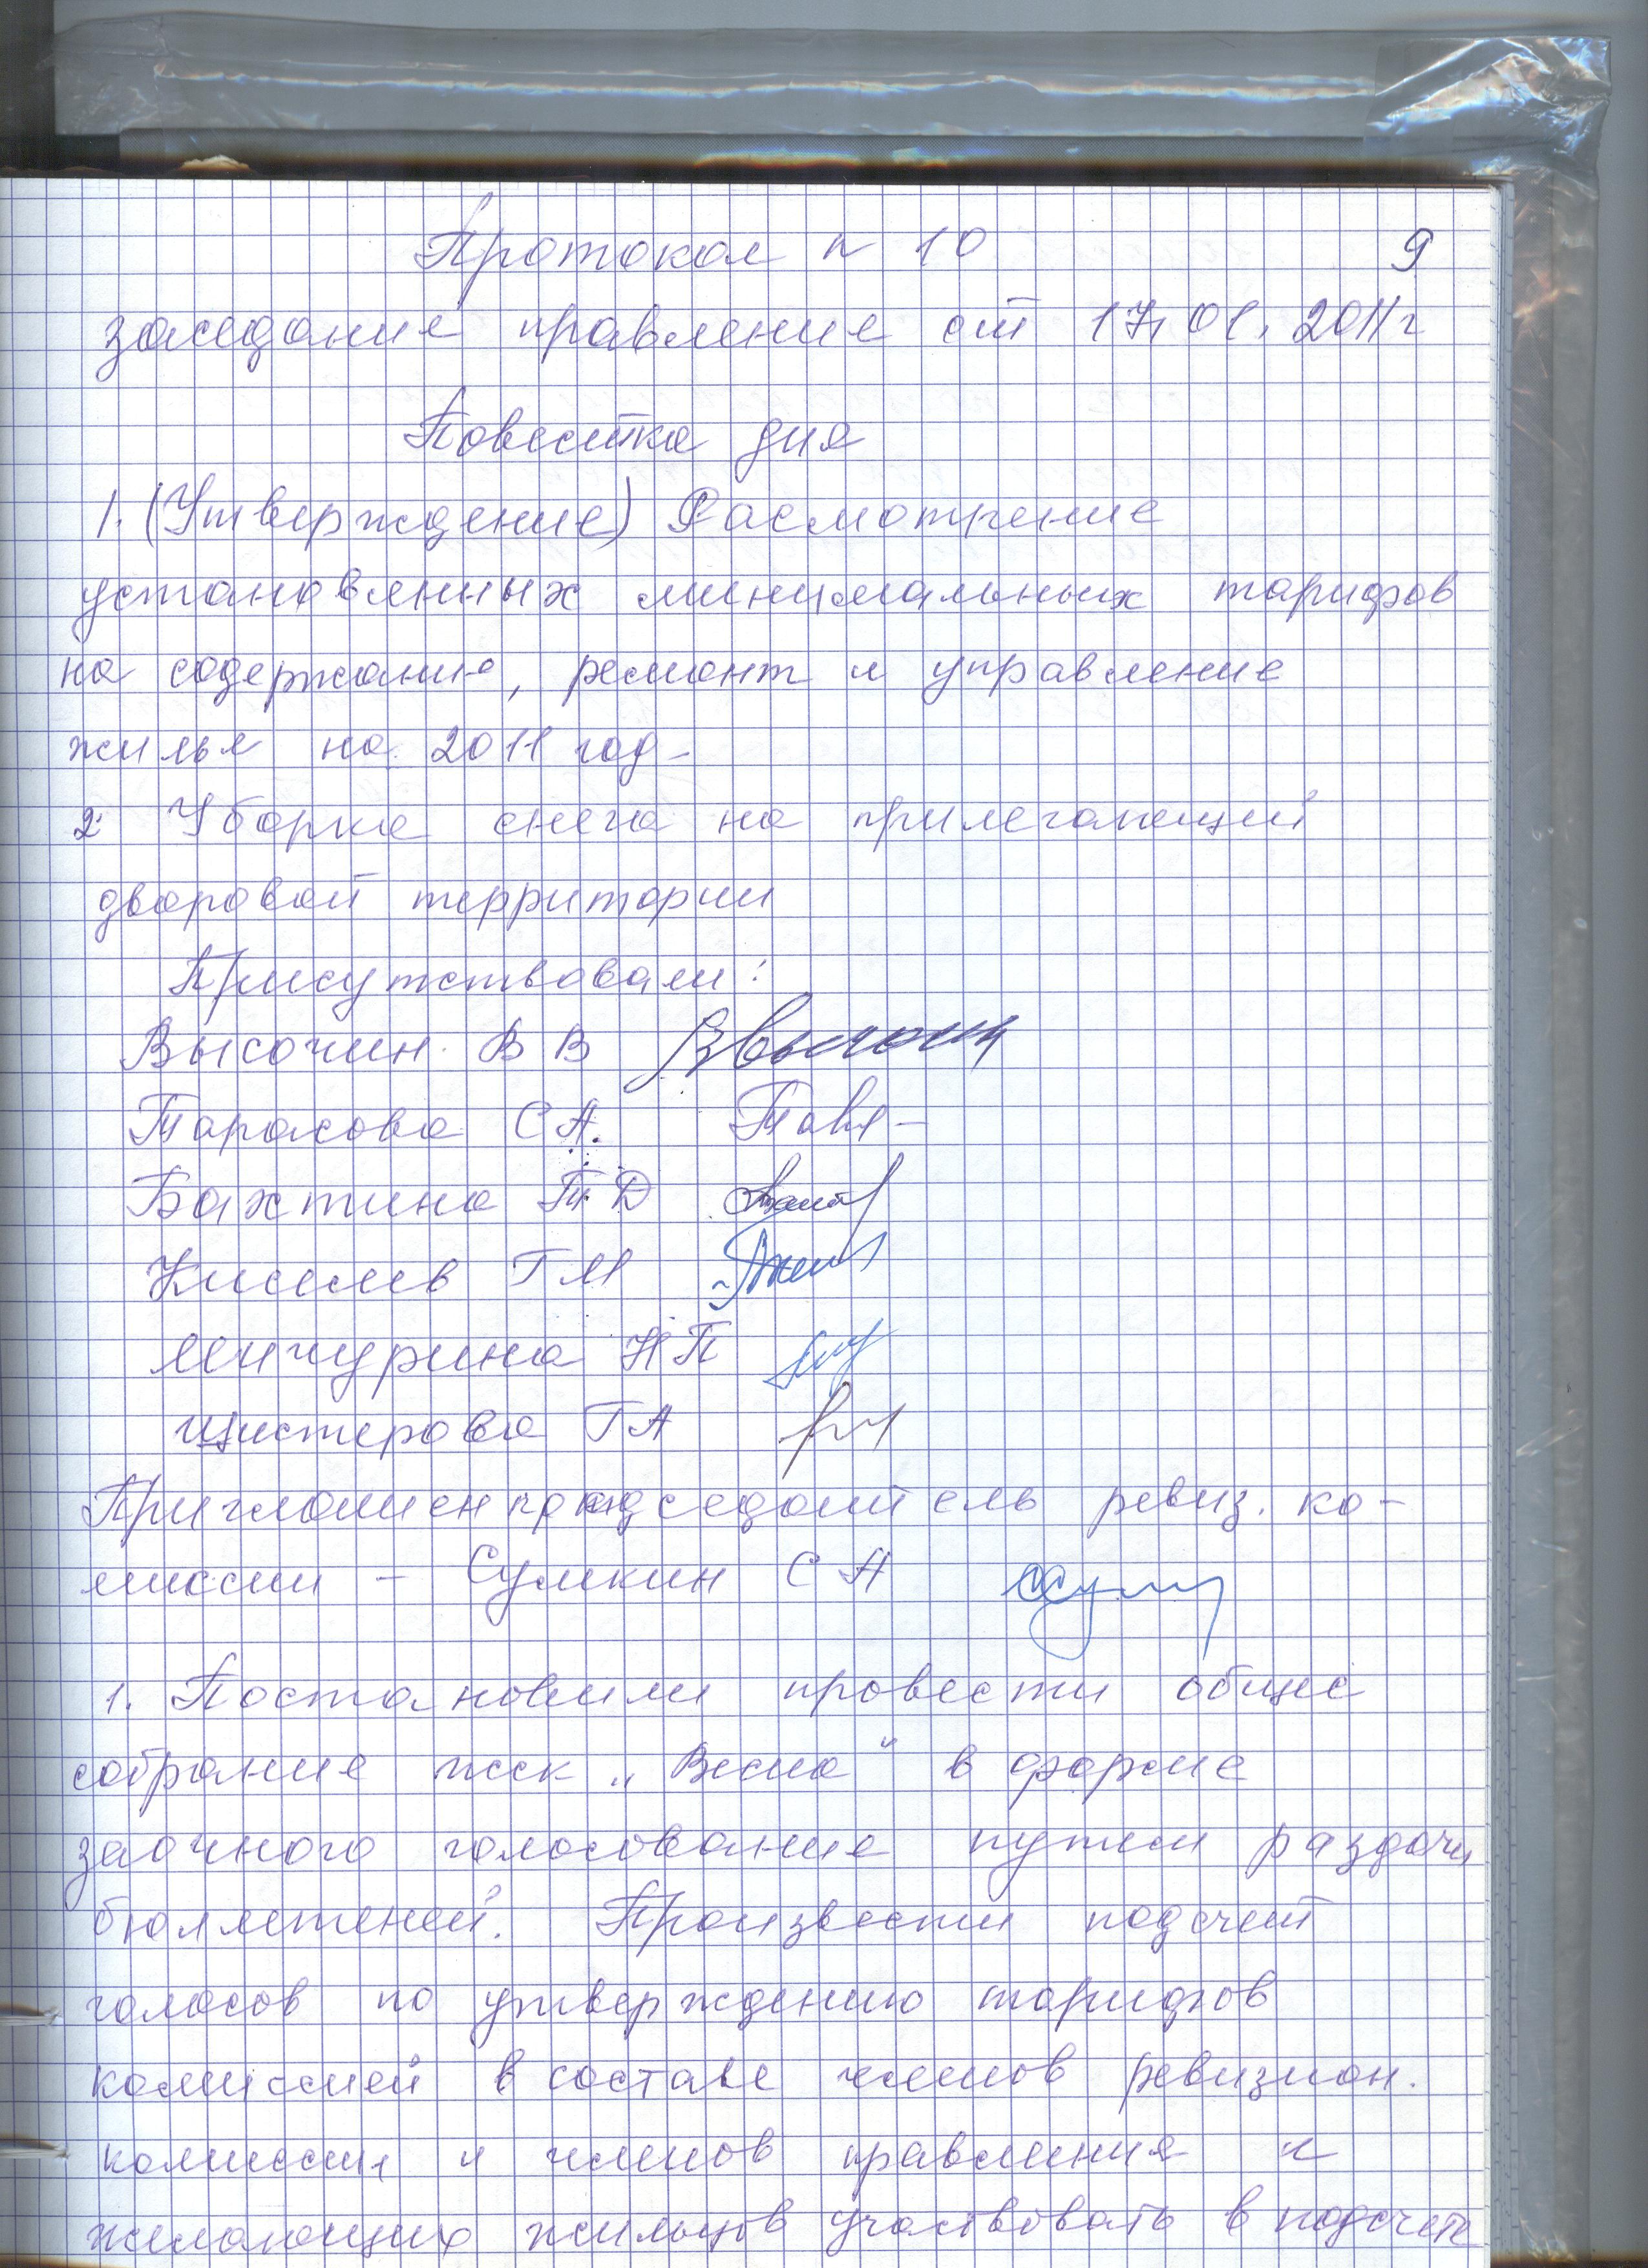 Протокол н 10 9
заседание правление от 17.01.2011г
Повестка дня
1. (Утверждение) Расмотрение
установленных минимальных тарифов
на содержание, ремонт и управление
жилья на 2011 год-
2. Уборка снега на прилегающий
дворовой территории
Присутствовали:
Высочин. В В
Тарасова С А.
Бахтина Т Д
Киселев Г М
Мичурина Н П
Цистерова Г А
Приглашен председатель ревиз. ко-
миссии - Сумкин С А
1. Постановили провести общее
собрание жск „Весна“ в форме
заочного голосование путем раздачи
бюллетеней. Произвести подсчет
голосов по утверждению тарифов
комиссией в составе членов ревизион.
комиссии и членов правления и
желающих жильцов участвовать в подсчете